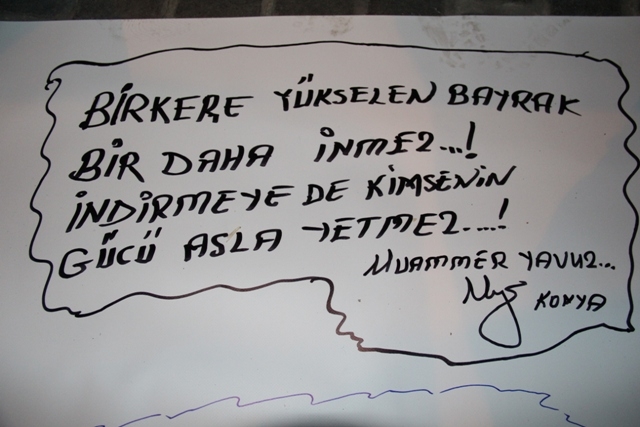 BİRKERE YÜKSELEN BAYRAK
BİR DAHA İNMEZ...!
İNDİRMEYE DE KİMSENİN
GÜCÜ ASLA YETMEZ....!
MUAMMER YAVUZ...
KONYA